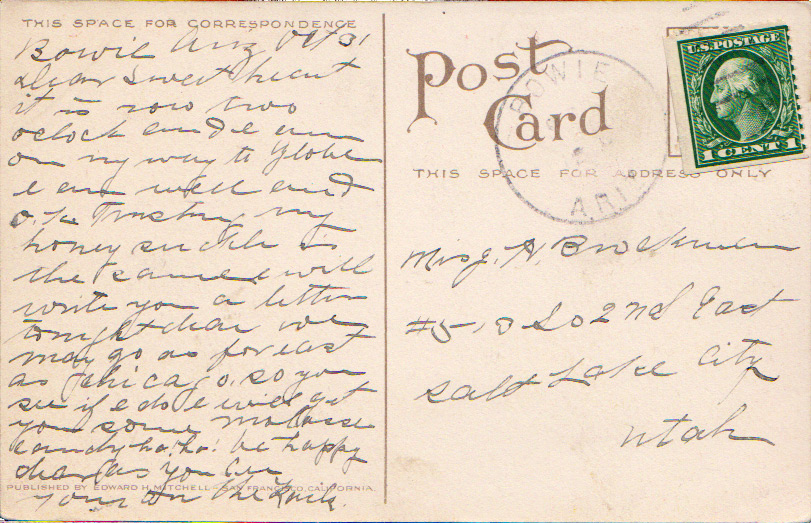 THIS SPACE FOR CORRESPONDENCE
Bowie Ariz Oct 31
Dear Sweetheart
it is now two
oclock and e am
on my way to Globe
e am well and
o.k. Trusting my
honey suckle is
the same e will
write you a letter
tonight dear we
may go as far east
as Chicago. so you
see if e do e will get
you some molasse
candy ha! ha! be happy
dear as you
PUBLISHED BY EDWARD H. MITCHELL - SAN FRANCISCO, CALIFORNIA.
your on the
Post
Card
THIS SPACE FOR ADDRESS ONLY
BOWIE
ARIZ
U.S. POSTAGE
1 CENT 1
Mrs J. H. Brockman
#510 So 2nd East
Salt Lake City
Utah